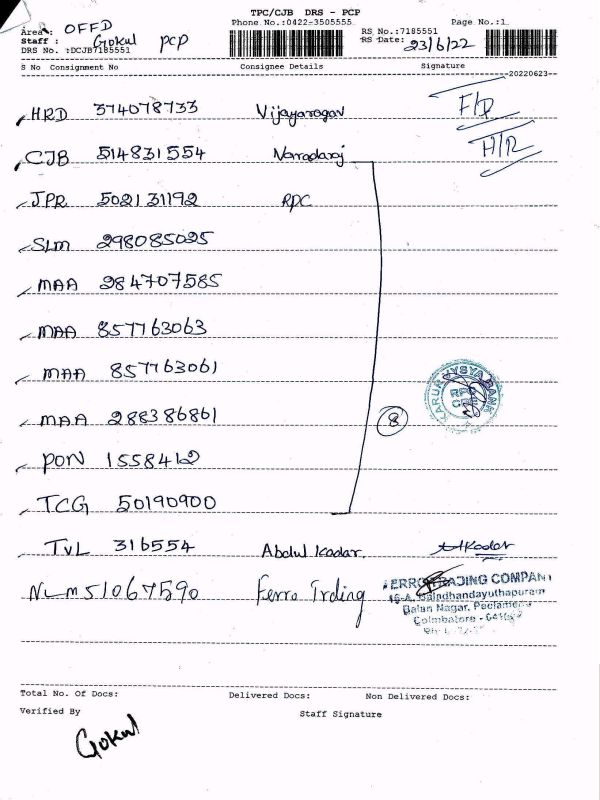 TPC/CJB DRS - PCP
Phone No.:0422-3505555 Page No.:1
Area: OFFD
Staff : Gokul PCP
RS No.:7185551
DRS No. :DCJB7185551
RS Date: 23/6/22
S No Consignment No Consignee Details Signature
20220623
HRD 374078733 Vijayaragav F/D
CJB 514831554 Varadaraj H/R
JPR 502131192 RPC
SLM 298085025
MAA 284707585
MAA 857763063
MAA 857763061
MAA 288386861
8
KARUR VYSYA BANK
PON 1558412
TCG 50190900
TVL 316554 Abdul Kadar. AKadar
NLM 51067590 Ferro Trding
FERRO TRADING COMPANY
Baladhandayuthapuram
Balan Nagar, Peelamedu
Coimbatore -
Total No. Of Docs: Delivered Docs: Non Delivered Docs:
Verified By Staff Signature
Gokul